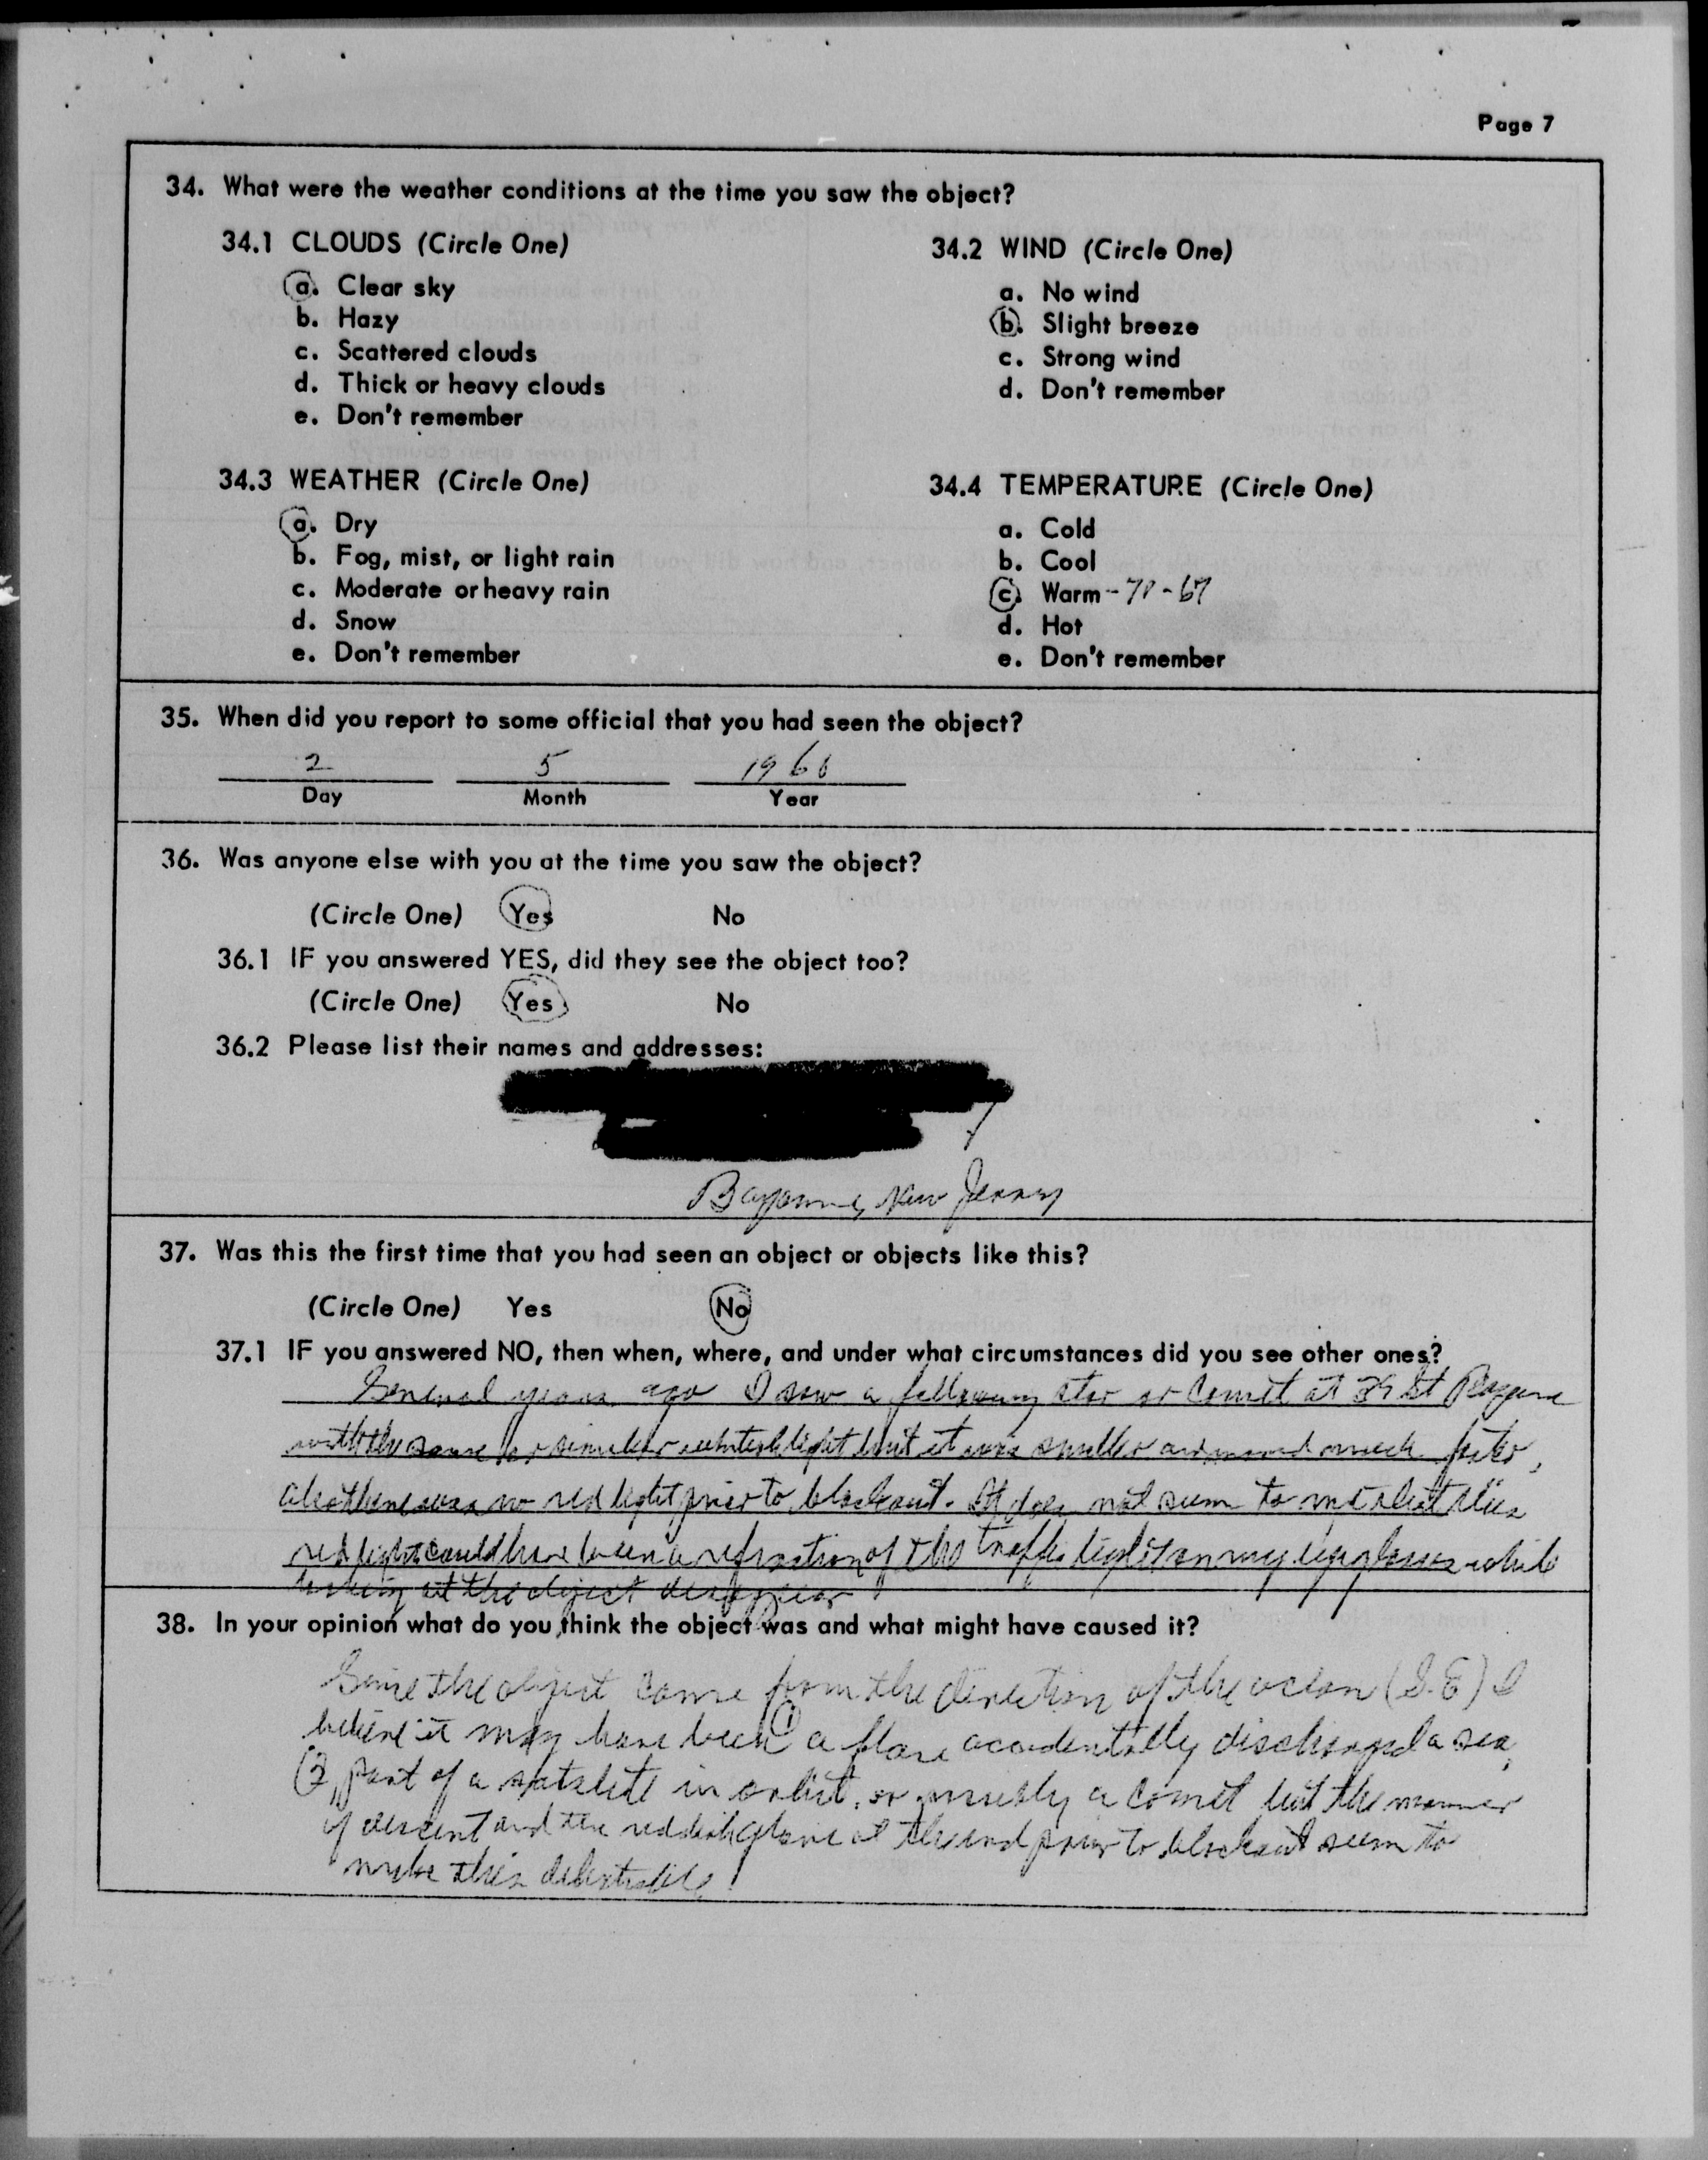 Page 7
34. What were the weather conditions at the time you saw the object?
34.1 CLOUDS (Circle One)
a. Clear sky
b. Hazy
c. Scattered clouds
d. Thick or heavy clouds
e. Don't remember
34.2 WIND (Circle One)
a. No wind
b. Slight breeze
c. Strong wind
d. Don't remember
34.3 WEATHER (Circle One)
a. Dry
b. Fog, mist, or light rain
c. Moderate or heavy rain
d. Snow
e. Don't remember
34.4 TEMPERATURE (Circle One)
a. Cold
b. Cool
c. Warm
d. Hot
e. Don't remember
35. When did you report to some official that you had seen the object?
2 5
Day Month Year
36. Was anyone else with you at the time you saw the object?
(Circle One) Yes No
36.1 IF you answered YES, did they see the object too?
(Circle One) Yes No
36.2 Please list their names and addresses:
Bayonne, New Jersey
37. Was this the first time that you had seen an object or objects like this?
(Circle One) Yes No
37.1 IF you answered NO, then when, where, and under what circumstances did you see other ones?
Several years ago I saw a star or comet at St
with the same or similar whitish light but it was smaller and moved much
also there was no red light prior to blackout. It does not seem to me that this
red light could have been a refraction of the traffic light on my eyeglasses while
looking at the object disappear
38. In your opinion what do you think the object was and what might have caused it?
Since the object came from the direction of the ocean (S.E) I
believe it may have been (1) a flare accidentally discharged a sea,
(2) part of a in orbit, or possibly a comet but the manner
of descent and the reddish at the end prior to blackout seem to
make this debatable.